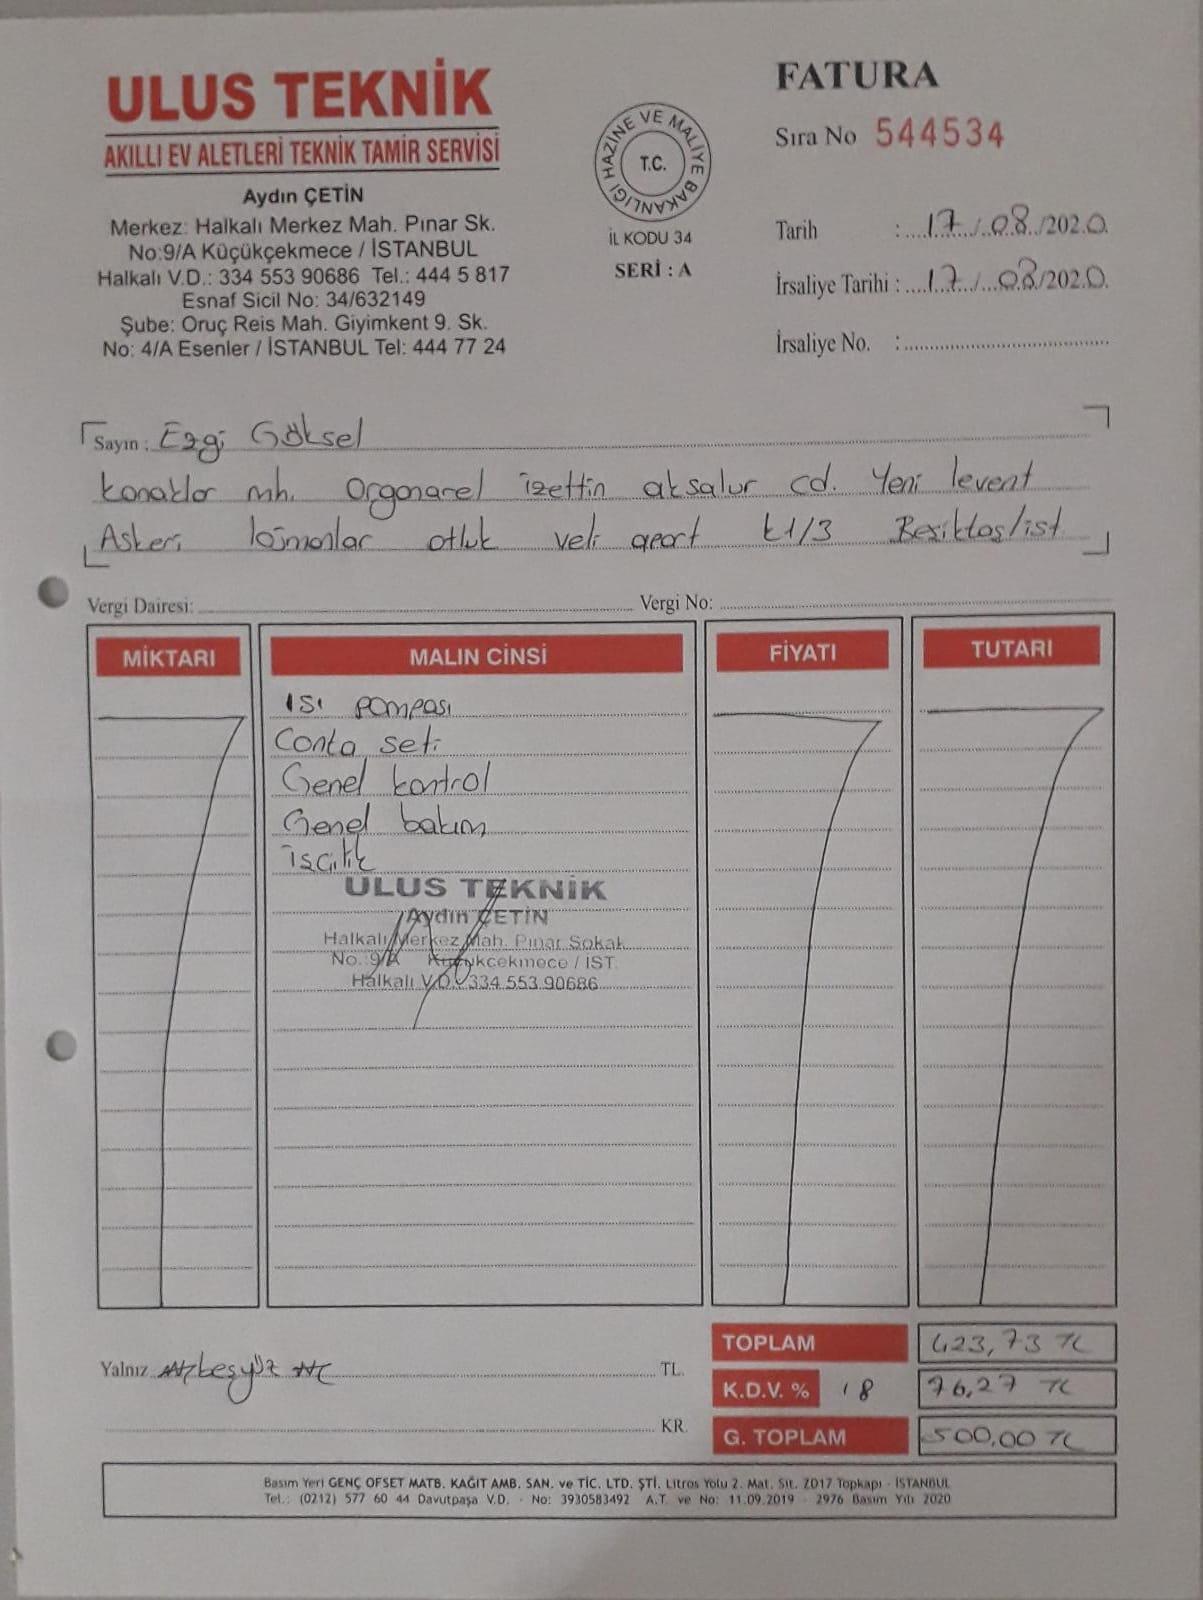 ULUS TEKNİK
AKILLI EV ALETLERİ TEKNİK TAMİR SERVİSİ
Aydın ÇETİN
Merkez: Halkalı Merkez Mah. Pınar Sk.
No:9/A Küçükçekmece / İSTANBUL
Halkalı V.D.: 334 553 90686 Tel.: 444 5 817
Esnaf Sicil No: 34/632149
Şube: Oruç Reis Mah. Giyimkent 9. Sk.
No: 4/A Esenler / İSTANBUL Tel: 444 77 24
T.C.
HAZİNE VE MALİYE BAKANLIĞI
İL KODU 34
SERİ : A
FATURA
Sıra No 544534
Tarih : 17/08/2020
İrsaliye Tarihi : 17/08/2020
İrsaliye No. :
Sayın : Ezgi Göksel
konaklar mh. Orgonarel izettin aksalur cd. Yeni levent
Askeri lojmanlar otluk veli apart k1/3 Beşiktaş/ist
Vergi Dairesi: Vergi No:
MİKTARI MALIN CİNSİ FİYATI TUTARI
ısı pompası
Conta seti
Genel kontrol
Genel bakım
işçilik
ULUS TEKNİK
Aydın ÇETİN
Halkalı Merkez Mah. Pınar Sokak
No.:9/A Küçükçekmece / İST.
Halkalı V.D.: 334 553 90686
TOPLAM 423,73 TL
Yalnız beşyüz TL.
K.D.V. % 18 76,27 TL
KR.
G. TOPLAM 500,00 TL
Basım Yeri GENÇ OFSET MATB. KAĞIT AMB. SAN. ve TİC. LTD. ŞTİ. Litros Yolu 2. Mat. Sit. ZD17 Topkapı - İSTANBUL
Tel.: (0212) 577 60 44 Davutpaşa V.D. - No: 3930583492 A.T. ve No: 11.09.2019 - 2976 Basım Yılı 2020